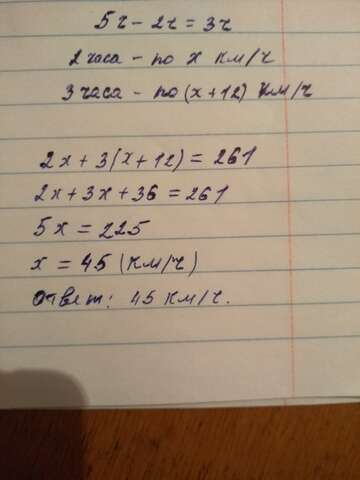 5ч - 2ч = 3ч
2 часа - по x км/ч
3 часа - по (x+12) км/ч
2x + 3(x+12) = 261
2x + 3x + 36 = 261
5x = 225
x = 45 (км/ч)
ответ: 45 км/ч.